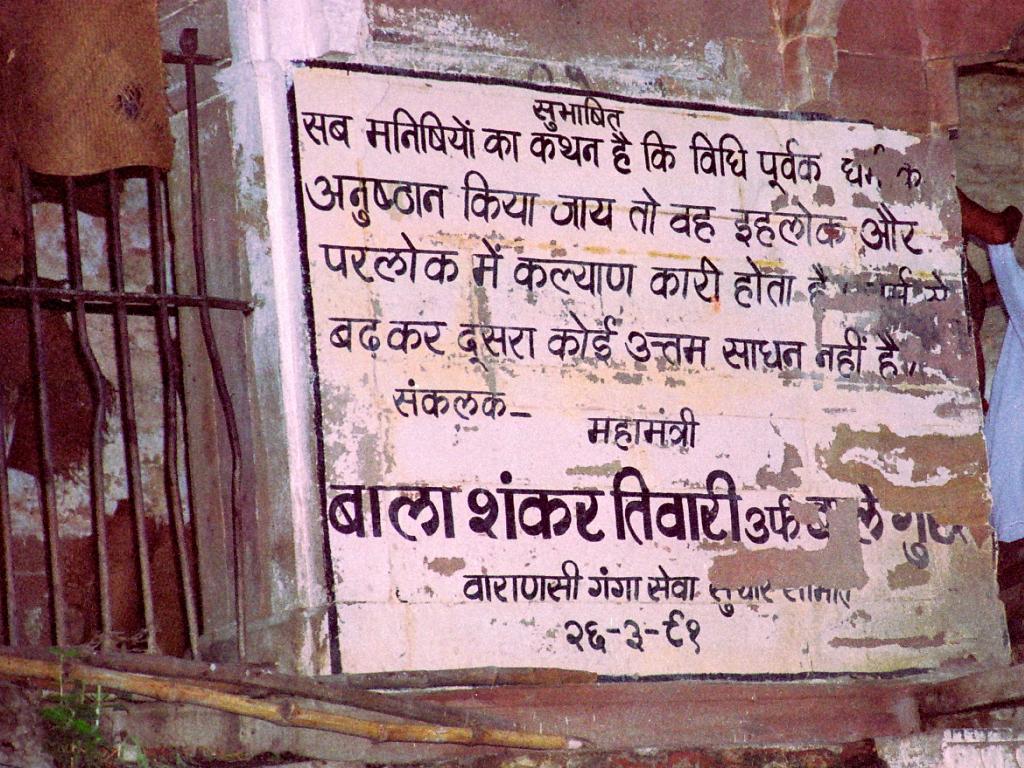 सुभाषित
सब मनिषियों का कथन है कि विधि पूर्वक
अनुष्ठान किया जाय तो वह इहलोक और
परलोक में कल्याण कारी होता है
बढ़कर दूसरा कोई उत्तम साधन नहीं है
संकलक-
महामंत्री
बाला शंकर तिवारी उर्फ
वाराणसी गंगा सेवा
२६-३-९१